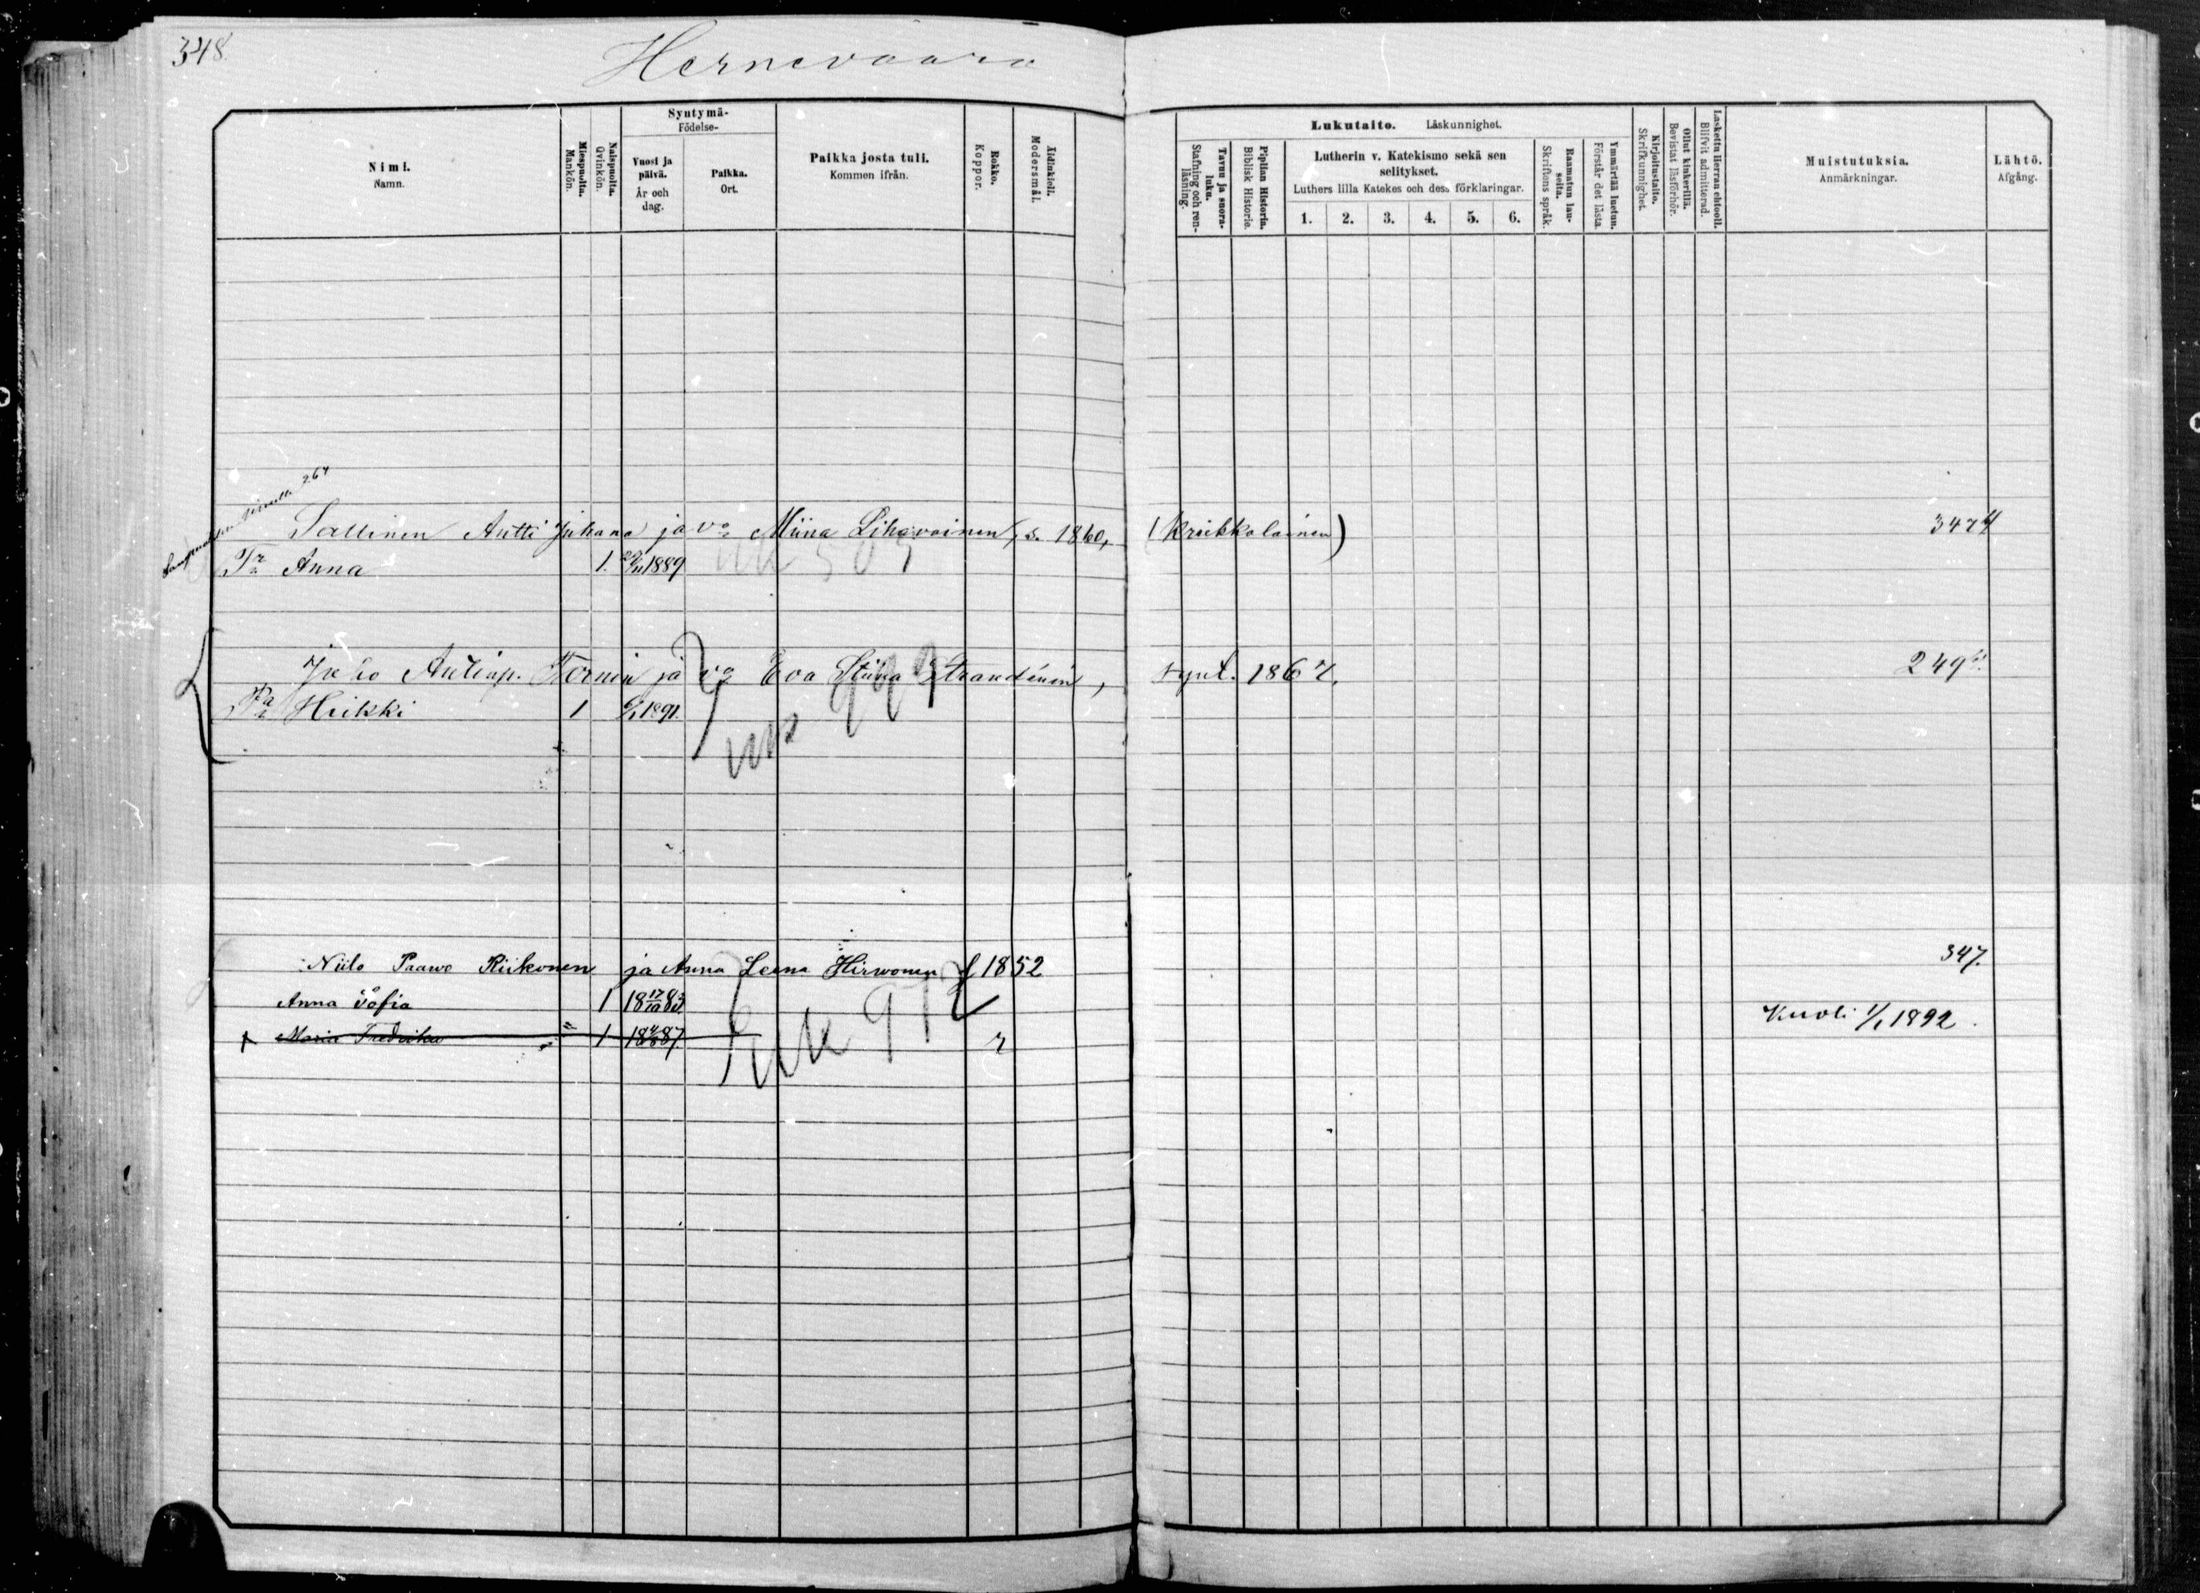 348.
Hernevaara
Nimi.
Namn.
Miespuolta.
Mankön.
Naispuolta.
Qvinkön.
Syntymä-
Födelse-
Vuosi ja päivä.
År och dag.
Paikka.
Ort.
Paikka josta tuli.
Kommen ifrån.
Rokko.
Koppor.
Äidinkieli.
Modersmål.
Lukutaito. Läskunnighet.
Tavuu ja suora-luku.
Stafning och ren-läsning.
Piplian Historia.
Biblisk Historie.
Lutherin v. Katekismo sekä sen
selitykset.
Luthers lilla Katekes och dess förklaringar.
1. 2. 3. 4. 5. 6.
Raamatun lau-seita.
Skriftens språk.
Ymmärtää luetun.
Förstår det lästa.
Kirjoitustaito.
Skrifkunnighet.
Ollut kinkerillä.
Bevistat läsförhör.
Laskettu Herran ehtoolle.
Blifvit admitterad.
Muistutuksia.
Anmärkningar.
Lähtö.
Afgång.
264
Sallinen Antti Juhana ja vo Miina Lihavainen, s. 1860, (Kreikkalainen) 347
Tr Anna 1. 1889
Antinp. Tornin ja vo Eva Stiina Strandinin, synt. 1867. 249
Pa Heikki 1 1891.
Niilo Paavo Riikonen ja Anna Leena Hirvonen f 1852 347.
Anna Sofia 1 18 17/10 83
Maria Fredrika 1 1887 r Kuoli 1/1 1892.